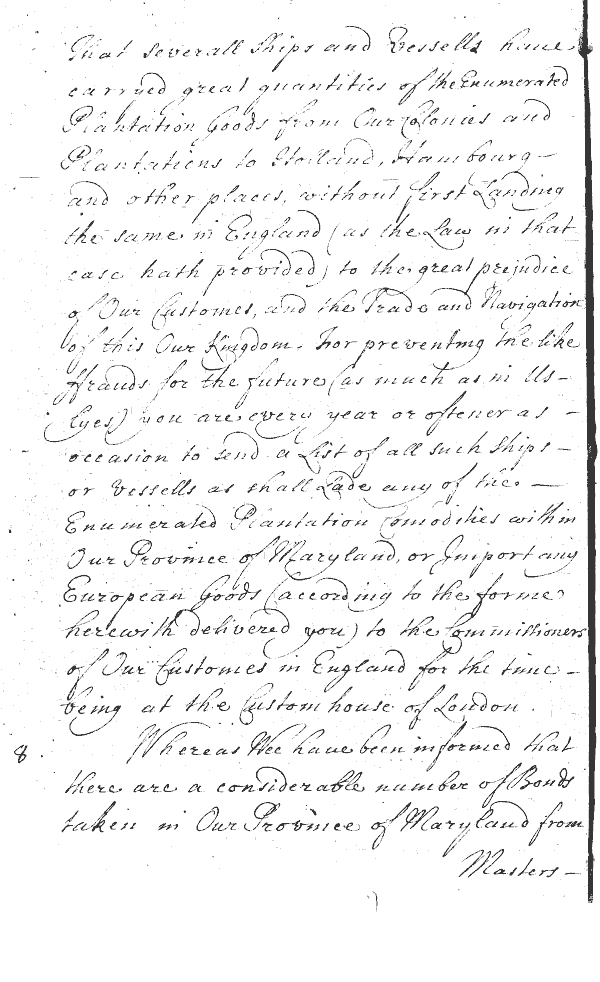 That severall Ships and Vessells have
carryed great quantities of the Enumerated
Plantation Goods from Our Colonies and
Plantations to Holland, Hambourg –
and other places, without first Landing
the same in England (as the Law in that
case hath provided) to the great prejudice
of Our Customes, and the Trade and Navigation
of this Our Kingdom. For preventing the like
frauds for the future (as much as in Us –
Lyes) you are every year or oftener as –
occasion to send a List of all such Ships –
or Vessells as shall Lade any of the –
Enumerated Plantation Comodities within
Our Province of Maryland, or Import any
European Goods (according to the forme
herewith delivered you) to the Commissioners
of Our Customes in England for the time –
being at the Custom house of London.
8. Whereas Wee have been informed that
there are a considerable number of Bonds
taken in Our Province of Maryland from
Masters –